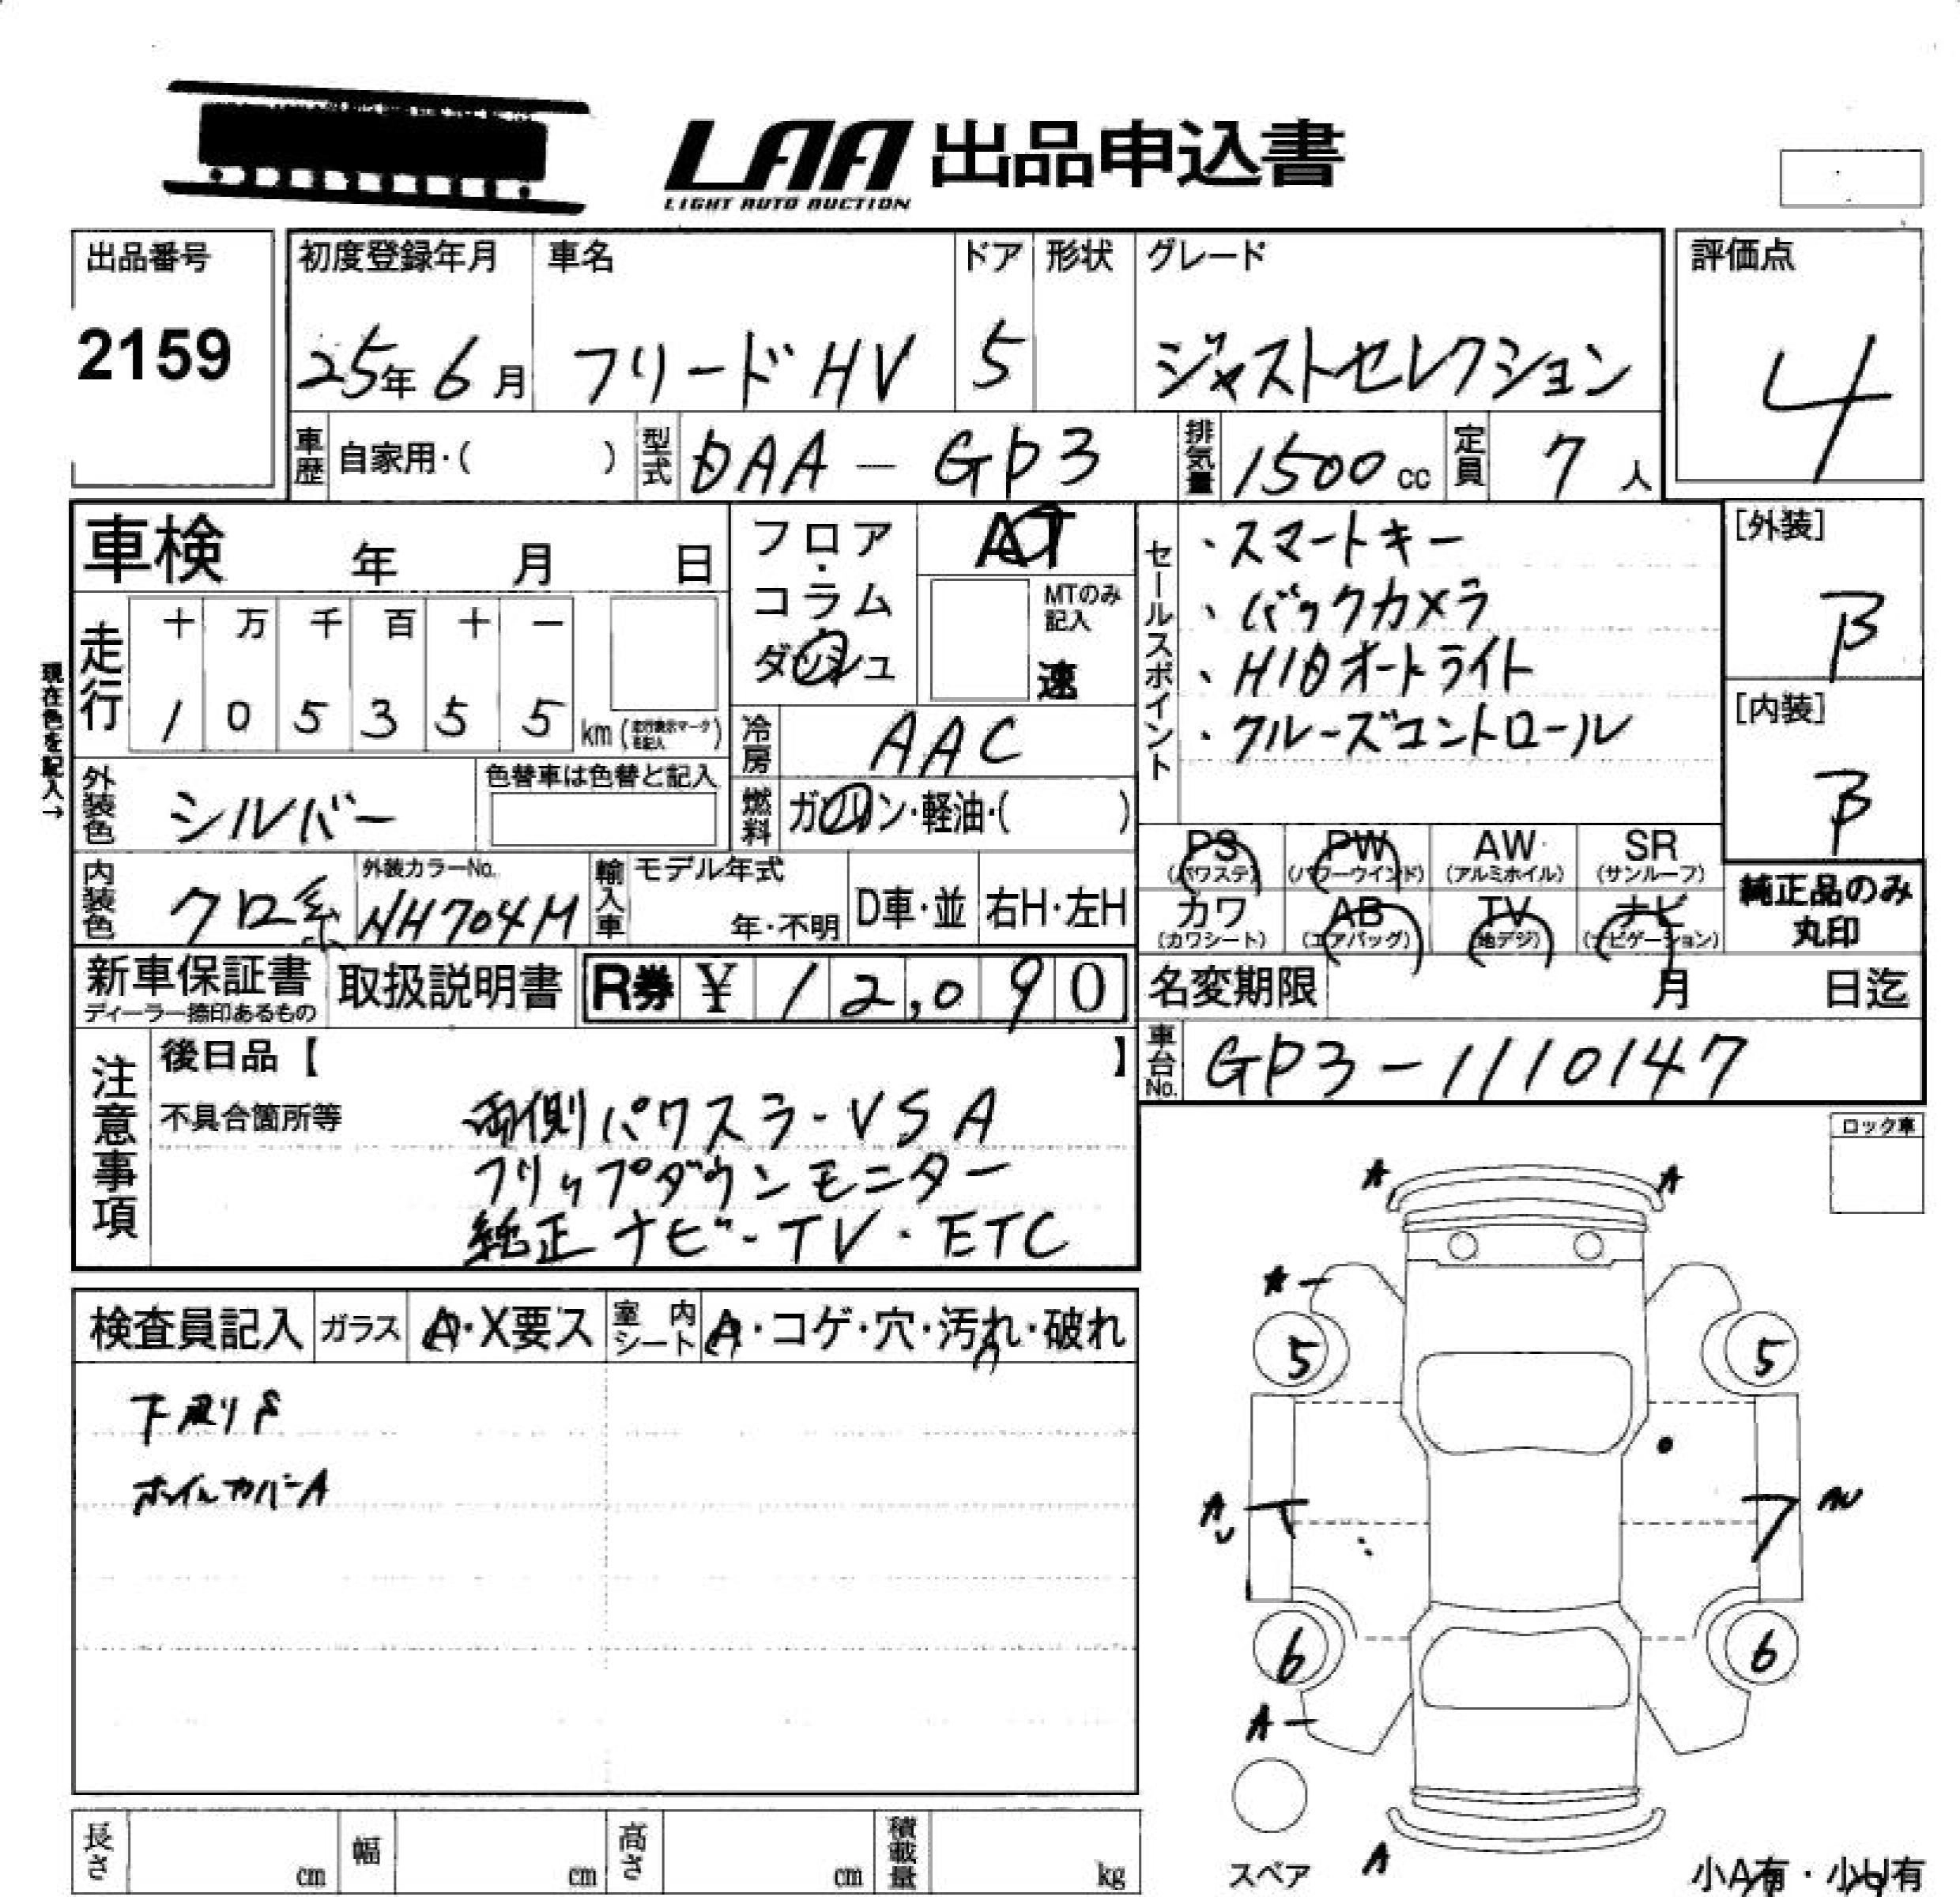 LAA 出品申込書
LIGHT AUTO AUCTION
出品番号
2159
初度登録年月
25年6月
車名
フリードHV
ドア
5
形状
グレード
ジャストセレクション
評価点
4
車歴 自家用・( )
型式 DAA-GP3
排気量 1500cc
定員 7人
車検 年 月 日
走行 十 万 千 百 十 一
1 0 5 3 5 5 km
現在色を記入→
フロア・コラム
ダッシュ
AT
MTのみ記入
速
冷房 AAC
燃料 ガソリン・軽油・( )
外装色 シルバー
色替車は色替と記入
内装色 クロ系
外装カラーNo.
NH704M
輸入車 モデル年式
年・不明
D車・並
右H・左H
セールスポイント
・スマートキー
・バックカメラ
・HIDオートライト
・クルーズコントロール
[外装]
B
[内装]
B
PS (パワステ)
PW (パワーウインド)
AW (アルミホイル)
SR (サンルーフ)
カワ (カワシート)
AB (エアバッグ)
TV (地デジ)
ナビ (ナビゲーション)
純正品のみ
丸印
新車保証書
ディーラー捺印あるもの
取扱説明書
R券 ¥ 12,090
名変期限 月 日迄
車台No. GP3-1110147
注意事項
後日品【 】
不具合箇所等
両側パワスラ・VSA
フリップダウンモニター
純正ナビ・TV・ETC
ロック車
検査員記入
ガラス A・X要ス
室内シート A・コゲ・穴・汚れ・破れ
ホイルカバーA
A A
A
5 5
A
U
AU
6 6
A
スペア
A
小A有・小U有
長さ cm
幅 cm
高さ cm
積載量 kg